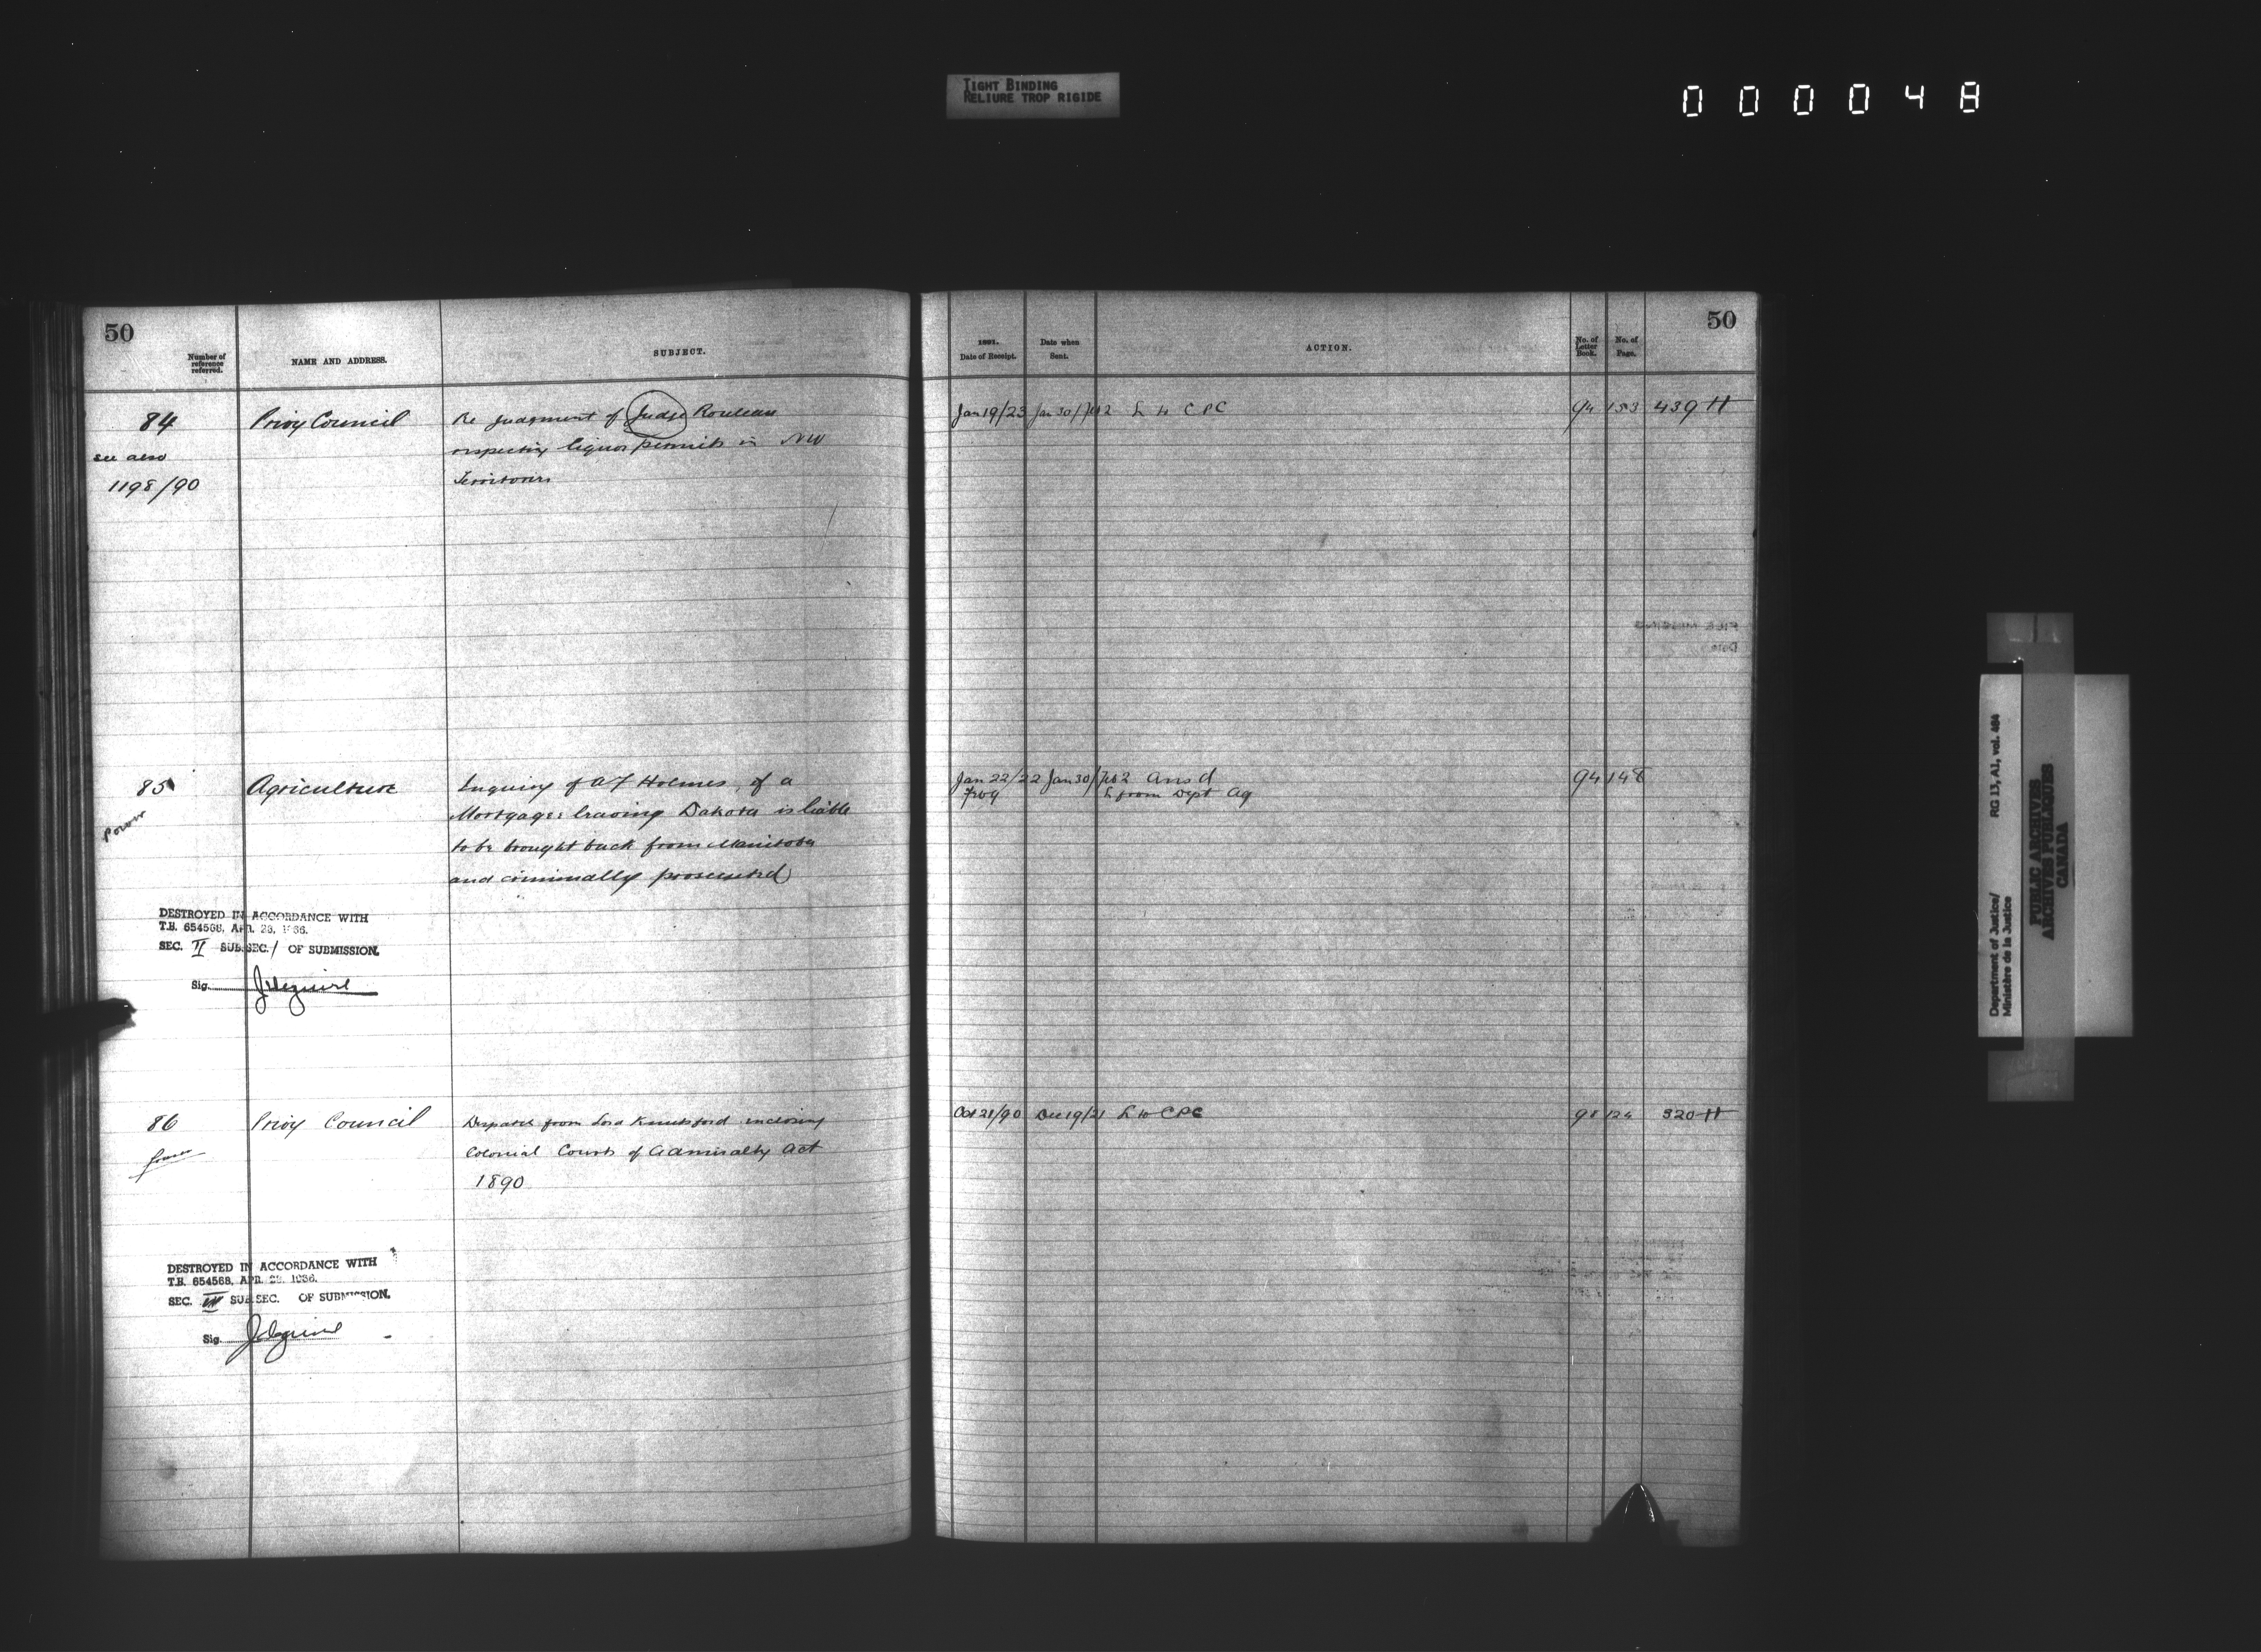 TIGHT BINDING
RELIURE TROP RIGIDE
000048
50
Number of
reference
referred.
NAME AND ADDRESS.
SUBJECT.
84
see also
1198/90
Privy Council
Re judgment of Judge Rouleau
respecting liquor permits in NW
Territories
85
Power
Agriculture
Inquiry of A F Holmes, if a
Mortgager leaving Dakota is liable
to be brought back from Manitoba
and criminally prosecuted
DESTROYED IN ACCORDANCE WITH
T.B. 654568, APR. 28, 1966.
SEC. II SUB.SEC. 1 OF SUBMISSION.
Sig.
86
Power
Privy Council
Despatch from Lord Knutsford inclosing
Colonial Courts of Admiralty Act
1890
DESTROYED IN ACCORDANCE WITH
T.B. 654568, APR. 28, 1966.
SEC. SUB.SEC. OF SUBMISSION.
Sig.
50
1891.
Date of Receipt.
Date when
Sent.
ACTION.
No. of
Letter
Book.
No. of
Page.
Jan 19/23 Jan 30/Feb 2 L to CPC 94 153 439 H
Jan 22/22 Jan 30/Feb 2 Ansd 94 148
L from Dept Ag
Oct 21/90 Dec 19/21 L to CPC 98 124 320 H
FILE MISSING
Date
Department of Justice/
Ministère de la Justice
RG 13, A1, vol. 464
PUBLIC ARCHIVES
ARCHIVES PUBLIQUES
CANADA